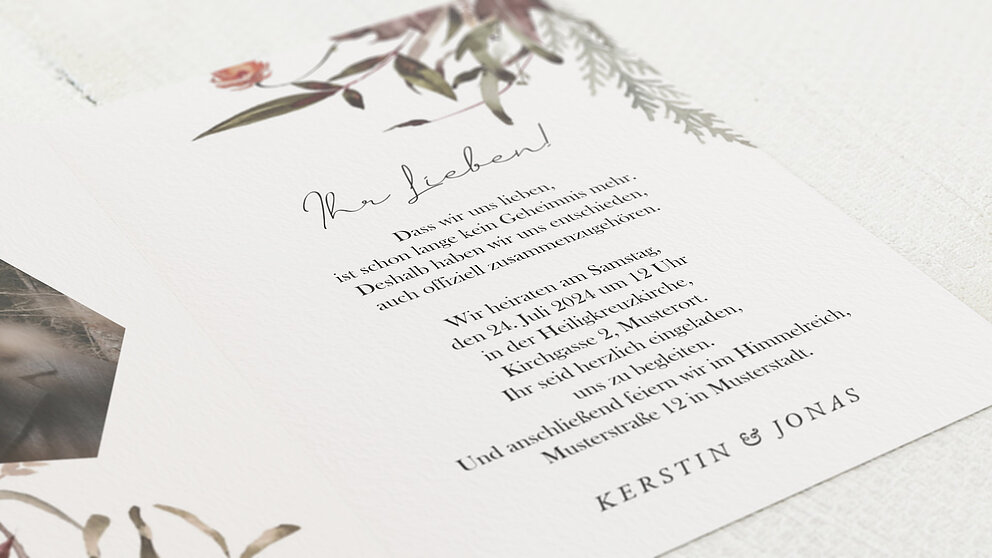 Ihr Lieben!
Dass wir uns lieben,
ist schon lange kein Geheimnis mehr.
Deshalb haben wir uns entschieden,
auch offiziell zusammenzugehören.
Wir heiraten am Samstag,
den 24. Juli 2024 um 12 Uhr
in der Heiligkreuzkirche,
Kirchgasse 2, Musterort.
Ihr seid herzlich eingeladen,
uns zu begleiten.
Und anschließend feiern wir im Himmelreich,
Musterstraße 12 in Musterstadt.
KERSTIN & JONAS